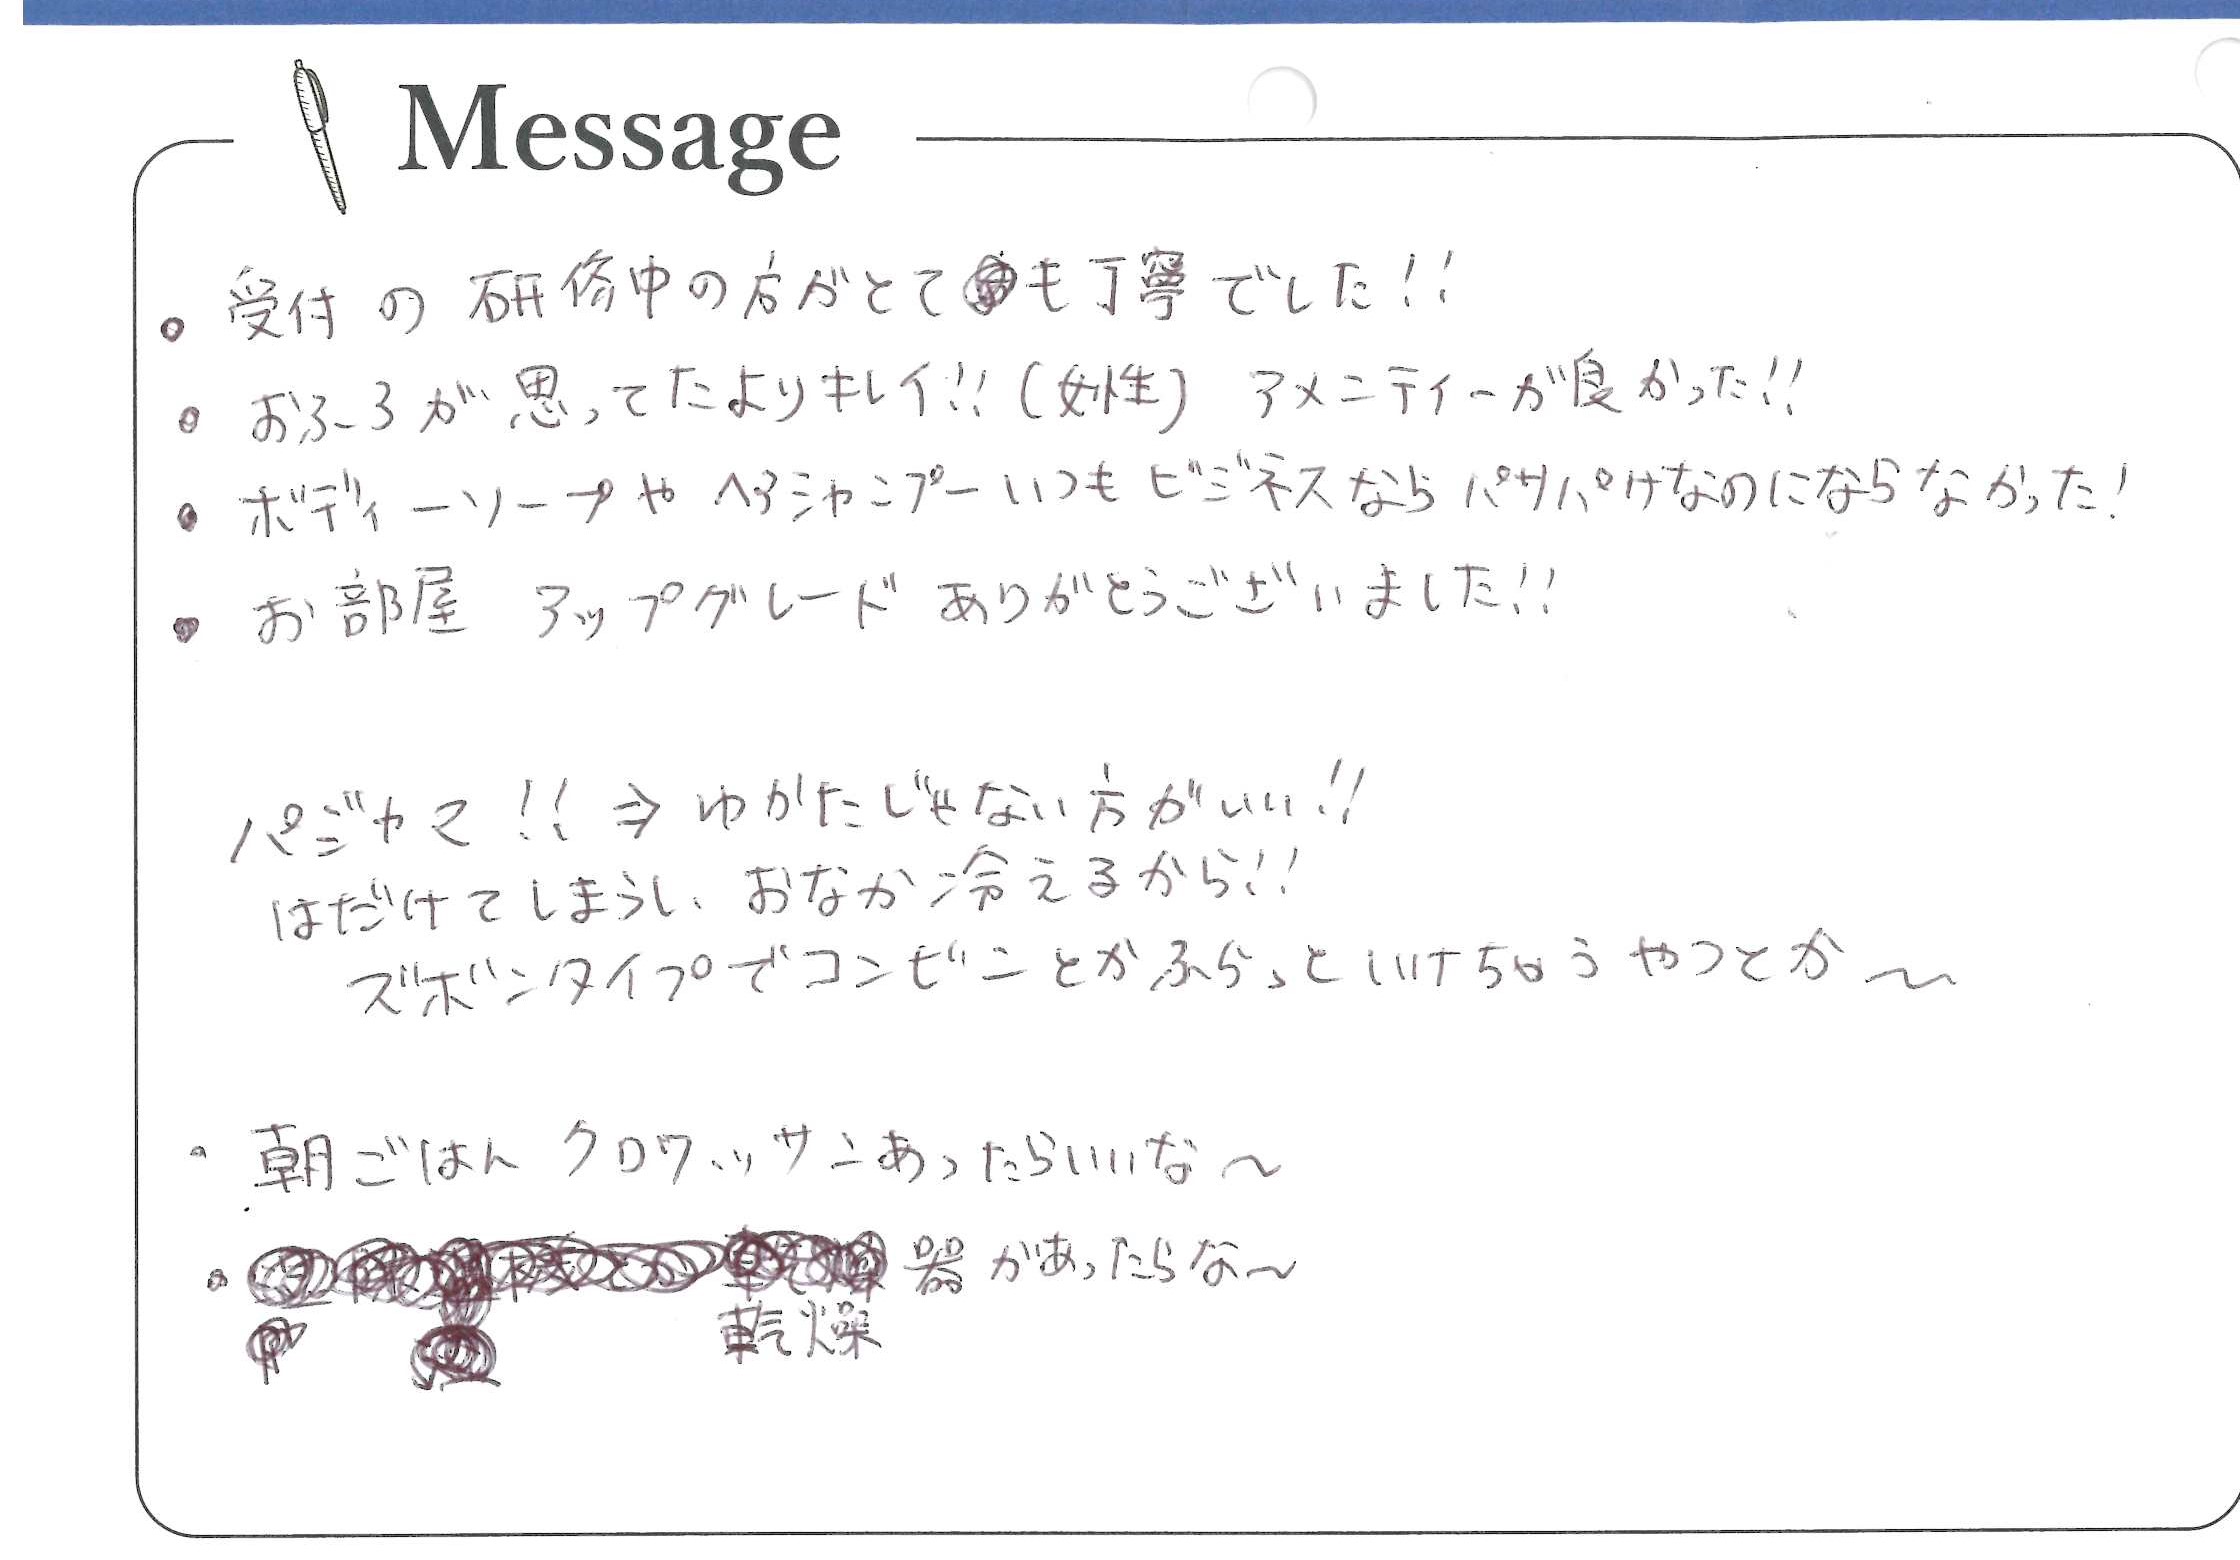 Message
• 受付の研修中の方がとても丁寧でした!!
• おふろが思ってたよりキレイ!!(女性) アメニティーが良かった!!
• ボディーソープや ヘアシャンプーいつもビジネスならパサパサけなのにならなかった!
• お部屋 アップグレードありがとうございました!!
パジャマ!!⇒ゆかたじゃない方がいい!!
はだけてしまうし、おなか冷えるから!!
ズボンタイプでコンビニとかふらっといけちゃうやつとか〜
• 朝ごはん クロワッサンあったらいいな〜
• 器があったらな〜
乾燥